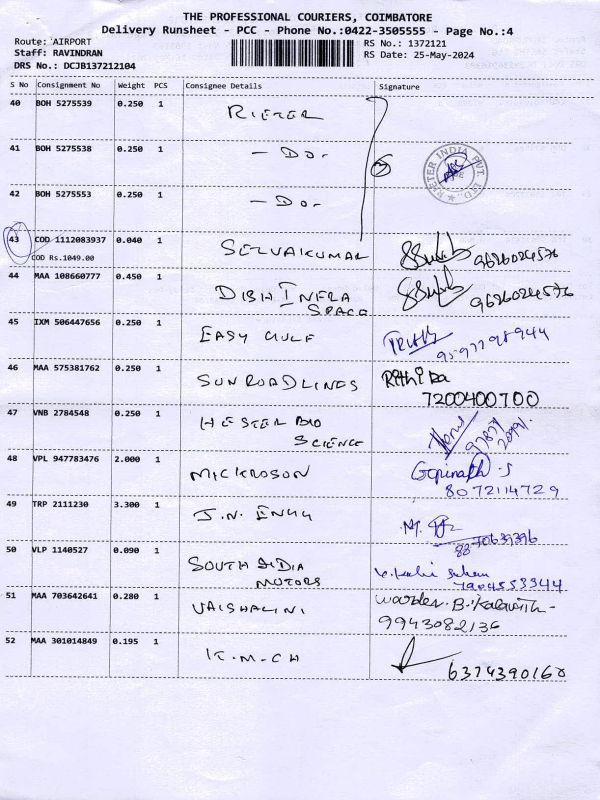 THE PROFESSIONAL COURIERS, COIMBATORE
Delivery Runsheet - PCC - Phone No.:0422-3505555 - Page No.:4
Route: AIRPORT
Staff: RAVINDRAN
DRS No.: DCJB137212104
RS No.: 1372121
RS Date: 25-May-2024
S No Consignment No Weight PCS Consignee Details Signature
40 BOH 5275539 0.250 1 RIETER
41 BOH 5275538 0.250 1 - DO -
RIETER INDIA PVT. LTD.
42 BOH 5275553 0.250 1 - DO -
43 COD 1112083937 0.040 1 SELVAKUMAR 9626024576
COD Rs.1049.00
44 MAA 108660777 0.450 1 DISH INFRA
SPACE 9626024576
45 IXM 506447656 0.250 1 EASY GULF
46 MAA 575381762 0.250 1 SUN ROADLINES Rithika
7200400700
47 VNB 2784548 0.250 1 HESTER BIO
SCIENCE
48 VPL 947783476 2.000 1 MICKROSON Gopinath.S
8072114729
49 TRP 2111230 3.300 1 J.N. ENGG
50 VLP 1140527 0.090 1 SOUTH INDIA
MOTORS 7904553344
51 MAA 703642641 0.280 1 VAISHALINI Warden.
9943082136
52 MAA 301014849 0.195 1 K.M.CH
6374390160